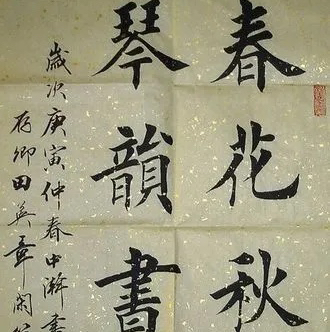 春花秋
琴韻書
歲次庚寅仲春中澣書
存卿田英章